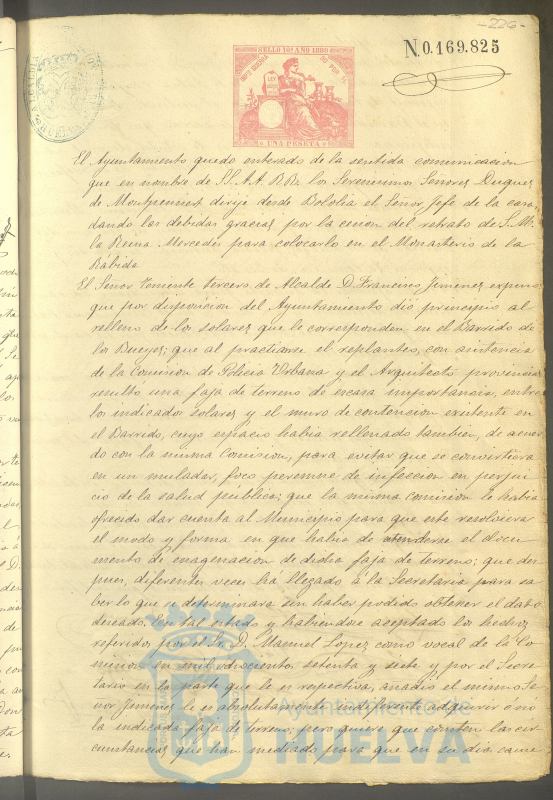 -226-
N.0.169.825
SELLO 10º AÑO 1880
UNA PESETA
El Ayuntamiento quedo enterado de la sentida comunicacion
que en nombre de S.S. A.A. R.R. los Serenisimos Señores Duques
de Montpensier dirije desde Bolonia el Señor Jefe de la casa
dando las debidas gracias por la cesion del retrato de S. M.
la Reina Mercedes para colocarlo en el Monasterio de la
Rábida
El Señor Teniente tercero de Alcalde D. Francisco Jimenez expuso
que por disposicion del Ayuntamiento dió principio al
relleno de los solares que le corresponden en el Barrido de
los Bueyes; que al practicarse el replanteo, con asistencia
de la Comision de Policia Urbana y el Arquitecto provincial
resulto una faja de terreno de escasa importancia, entre
los indicados solares y el muro de contencion existente en
el Barrido, cuyo espacio habia rellenado tambien, de acuer
do con la misma Comision, para evitar que se convirtiera
en un muladar, foco perenne de infeccion en perjui
cio de la salud publica; que la misma comision le habia
ofrecido dar cuenta al Municipio para que este resolviera
el modo y forma en que habia de atenderse el docu
mento de enagenacion de dicha faja de terreno; que des
pues, diferentes veces ha llegado á la Secretaria para sa
ber lo que se determinara sin haber podido obtener el dato
deseado. En tal estado y habiendose aceptado los hechos
referidos por el Sr. D. Manuel Lopez como vocal de la Co
mision en mil ochociento setenta y siete y por el Secre
tario en la parte que le es respectiva, añadió el mismo Se
ñor Jimenez le es absolutamente indiferente adquirir ó no
la indicada faja de terreno; pero quiere que consten las cir
cunstancias que han mediado para que en su dia cause
Ayuntamiento de
HUELVA